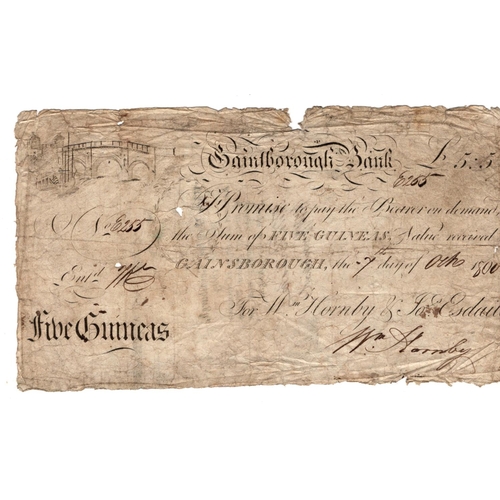 Gainsborough Bank £5:5
E255
I Promise to pay the Bearer on demand
No E255 the Sum of FIVE GUINEAS Value received
GAINSBOROUGH, the 7th day of Octr 180
Ent.d
For Wm. Hornby & Jos. Esdail
Five Guineas
Wm Hornby